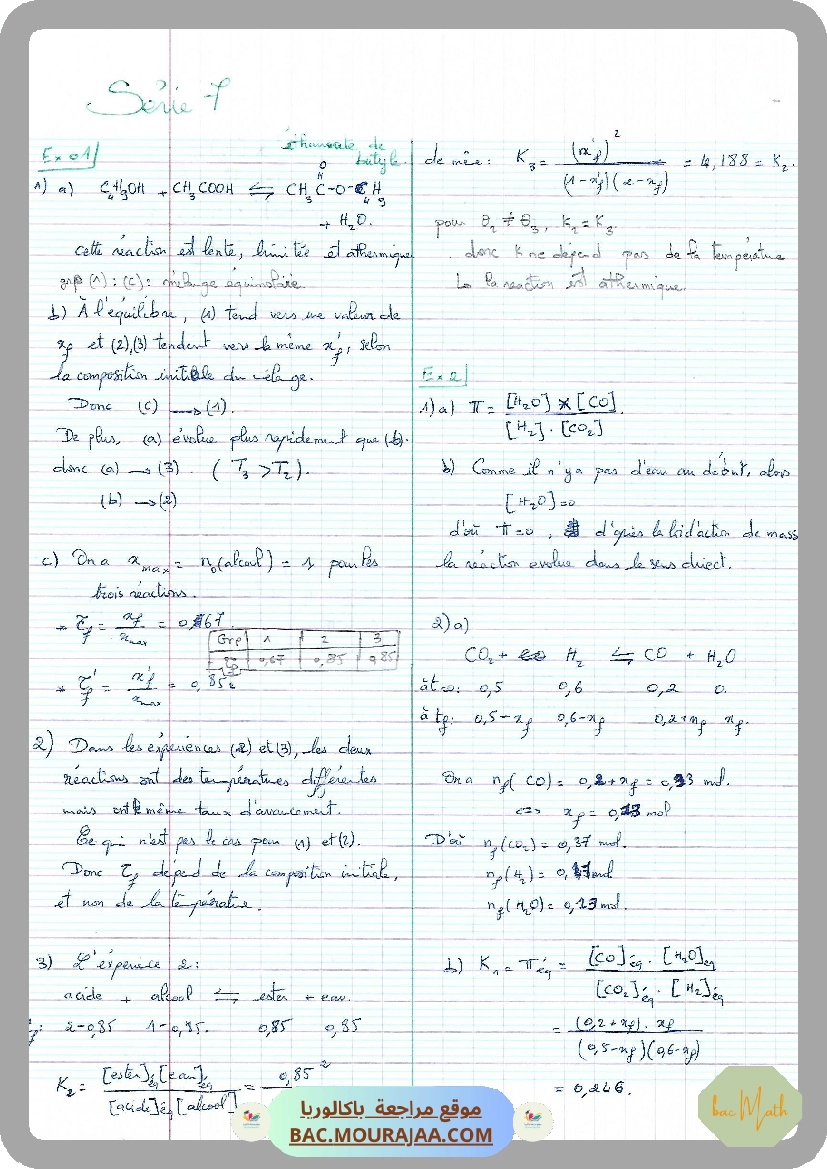 Série 7
Ex 01
1) a) C4H9OH + CH3COOH ⇌ CH3C-O-C4H9
O
éthanoate de
butyle
+ H2O.
cette réaction est lente, limitée et athermique
grp (1) : (c) : mélange équimolaire.
b) À l'équilibre, (1) tend vers une valeur de
xf et (2),(3) tendent vers le même x'f, selon
la composition initiale du mélange.
Donc (c) → (1).
De plus, (a) évolue plus rapidement que (b).
donc (a) → (3). (T3 > T2).
(b) → (2)
c) On a xmax = n0(alcool) = 1 pour les
trois réactions.
* τf = xf / xmax = 0,67.
Grp 1 2 3
τf 0,67 0,85 0,85
* τ'f = x'f / xmax = 0,85
2) Dans les expériences (2) et (3), les deux
réactions ont des températures différentes
mais ont le même taux d'avancement.
Ce qui n'est pas le cas pour (1) et (2).
Donc τf dépend de la composition initiale,
et non de la température.
3) L'expérience 2:
acide + alcool ⇌ ester + eau.
2-0,85 1-0,85. 0,85 0,85
K2 = [ester]éq[eau]éq / [acide]éq[alcool] = 0,85²
de même : K3 = (x'f)² / (1-x'f)(2-x'f) = 4,188 = K2.
pour θ2 ≠ θ3, K2 = K3.
donc K ne dépend pas de la température
↳ la réaction est athermique.
Ex 2
1) a) π = [H2O] × [CO] / [H2].[CO2]
b) Comme il n'y a pas d'eau au début, alors
[H2O] = 0
d'où π = 0, d'après la loi d'action de mass
la réaction évolue dans le sens direct.
2) a)
CO2 + H2 ⇌ CO + H2O
à t=0: 0,5 0,6 0,2 0.
à tf: 0,5-xf 0,6-xf 0,2+xf xf.
On a nf(CO) = 0,2+xf = 0,33 mol.
⟺ xf = 0,13 mol
D'où nf(CO2) = 0,37 mol.
nf(H2) = mol
nf(H2O) = 0,13 mol.
b) K1 = πéq = [CO]éq . [H2O]éq / [CO2]éq . [H2]éq
= (0,2+xf) . xf / (0,5-xf)(0,6-xf)
= 0,246.
موقع مراجعة باكالوريا
BAC.MOURAJAA.COM
bac Math